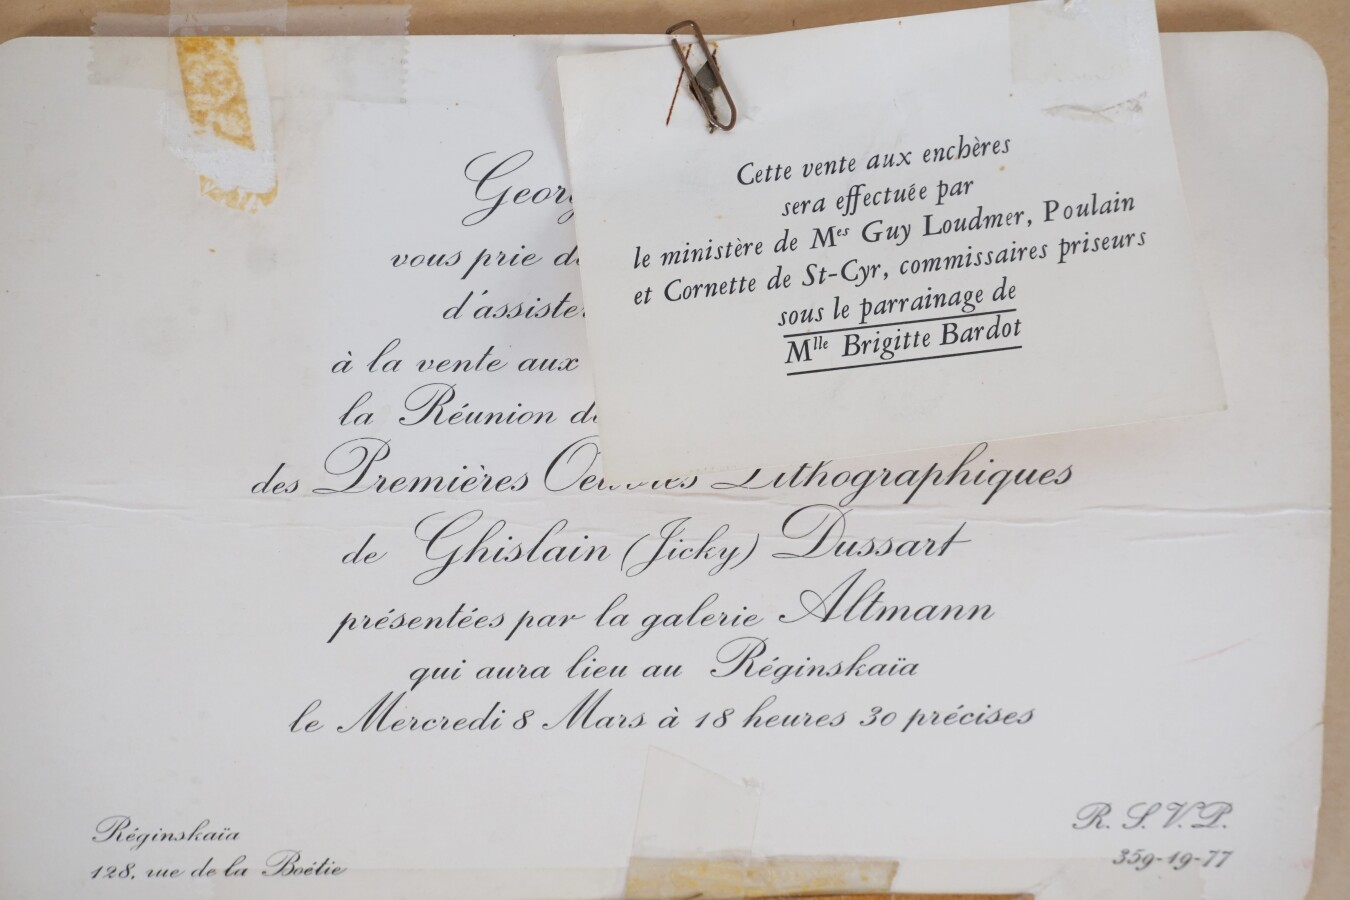 Cette vente aux enchères
sera effectuée par
le ministère de Mes Guy Loudmer, Poulain
et Cornette de St-Cyr, commissaires priseurs
sous le parrainage de
Mlle Brigitte Bardot
vous prie
d'assister
à la vente aux
la Réunion
des Premières Oeuvres Lithographiques
de Ghislain (Jicky) Dussart
présentées par la galerie Altmann
qui aura lieu au Réginskaïa
le Mercredi 8 Mars à 18 heures 30 précises
Réginskaïa
128, rue de la Boétie
R. S. V. P.
359-19-77